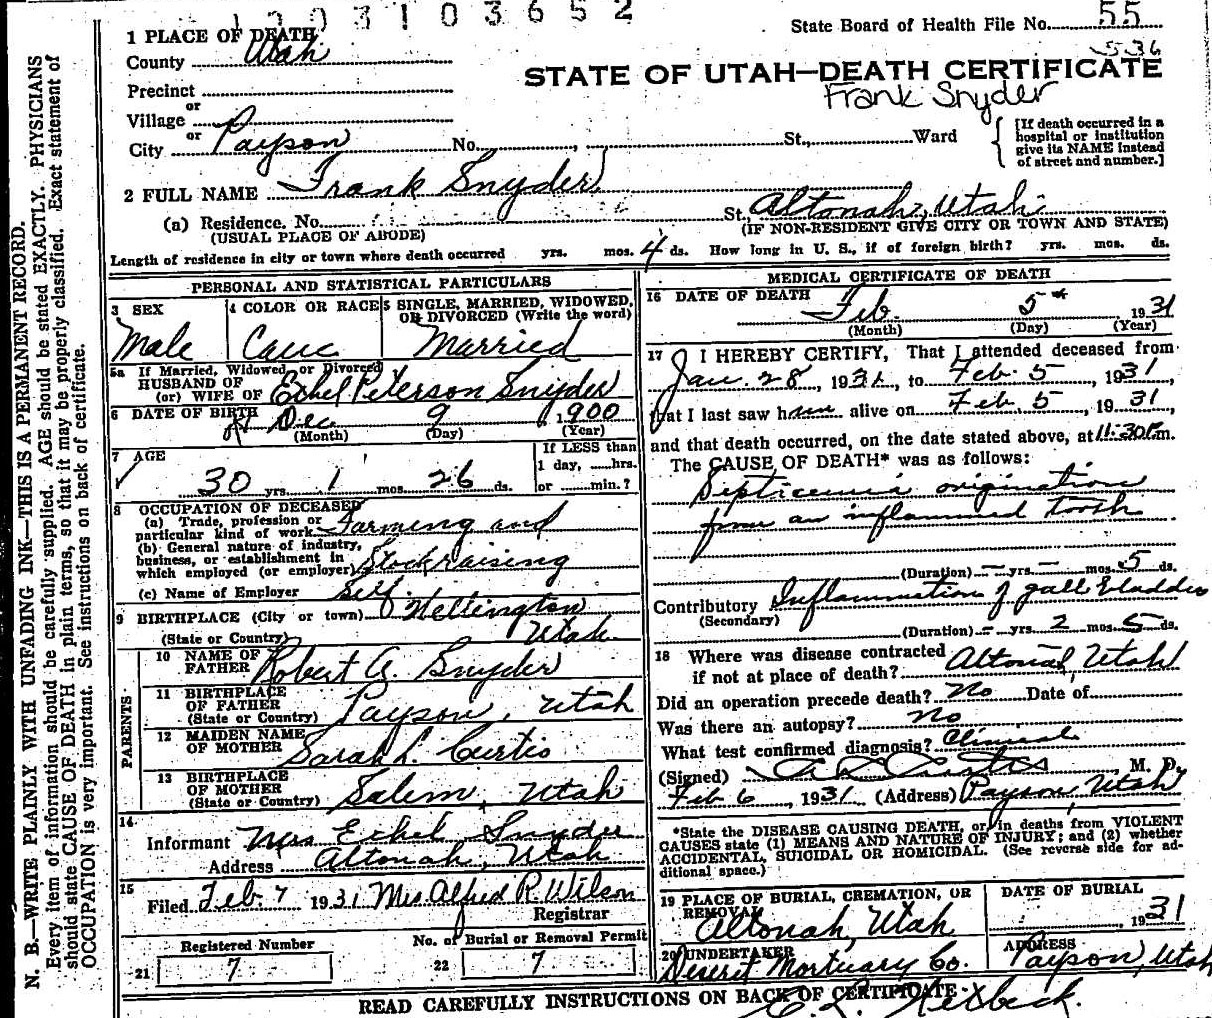 1 2 0 3 1 0 3 6 5 2
State Board of Health File No. 55
536
1 PLACE OF DEATH
County Utah
STATE OF UTAH—DEATH CERTIFICATE
Frank Snyder
Precinct
or
Village
or
City Payson No. , St., Ward
[If death occurred in a hospital or institution give its NAME instead of street and number.]
2 FULL NAME Frank Snyder
(a) Residence. No. St., Altonah, Utah
(USUAL PLACE OF ABODE) (IF NON-RESIDENT GIVE CITY OR TOWN AND STATE)
Length of residence in city or town where death occurred yrs. mos. 4 ds. How long in U. S., if of foreign birth? yrs. mos. ds.
PERSONAL AND STATISTICAL PARTICULARS
3 SEX
Male
4 COLOR OR RACE
Cauc
5 SINGLE, MARRIED, WIDOWED, OR DIVORCED (Write the word)
Married
5a If Married, Widowed, or Divorced
HUSBAND OF
(or) WIFE OF Ethel Peterson Snyder
6 DATE OF BIRTH Dec. 9 1900
(Month) (Day) (Year)
7 AGE
30 yrs. 1 mos. 26 ds.
If LESS than
1 day, ......hrs.
or ......min.?
8 OCCUPATION OF DECEASED
(a) Trade, profession or
particular kind of work Farming and
(b) General nature of industry,
business, or establishment in
which employed (or employer) Stockraising
(c) Name of Employer Self.
9 BIRTHPLACE (City or town) Wellington
(State or Country) Utah
PARENTS
10 NAME OF
FATHER Robert A. Snyder
11 BIRTHPLACE
OF FATHER
(State or Country) Payson, Utah
12 MAIDEN NAME
OF MOTHER Sarah L. Curtis
13 BIRTHPLACE
OF MOTHER
(State or Country) Salem, Utah
14
Informant Mrs Ethel Snyder
Address Altonah, Utah
15
Filed Feb. 7 1931 Mrs Alfred R. Wilson
Registrar
Registered Number
21 7
No. of Burial or Removal Permit
22 7
MEDICAL CERTIFICATE OF DEATH
16 DATE OF DEATH
Feb. 5th 1931
(Month) (Day) (Year)
17 I HEREBY CERTIFY, That I attended deceased from
Jan. 28, 1931, to Feb. 5, 1931
that I last saw him alive on Feb. 5, 1931,
and that death occurred, on the date stated above, at 11:30 P.m.
The CAUSE OF DEATH* was as follows:
Septicemia origination
from an inflammed tooth
(Duration) — yrs. — mos. 5 ds.
Contributory Inflammation of gall bladder
(Secondary)
(Duration) – yrs. 2 mos. 5 ds.
18 Where was disease contracted
if not at place of death? Altonah, Utah
Did an operation precede death? No Date of
Was there an autopsy? no
What test confirmed diagnosis? Clinical
(Signed) Curtis M. D.
Feb 6, 1931 (Address) Payson, Utah
*State the DISEASE CAUSING DEATH, or in deaths from VIOLENT
CAUSES state (1) MEANS AND NATURE OF INJURY; and (2) whether
ACCIDENTAL, SUICIDAL OR HOMICIDAL. (See reverse side for ad-
ditional space.)
19 PLACE OF BURIAL, CREMATION, OR
REMOVAL
Altonah, Utah
DATE OF BURIAL
, 1931
20 UNDERTAKER
Deseret Mortuary Co.
ADDRESS
Payson, Utah
READ CAREFULLY INSTRUCTIONS ON BACK OF CERTIFICATE
E. L.
N. B.—WRITE PLAINLY WITH UNFADING INK—THIS IS A PERMANENT RECORD.
Every item of information should be carefully supplied. AGE should be stated EXACTLY. PHYSICIANS
should state CAUSE OF DEATH in plain terms, so that it may be properly classified. Exact statement of
OCCUPATION is very important. See instructions on back of certificate.